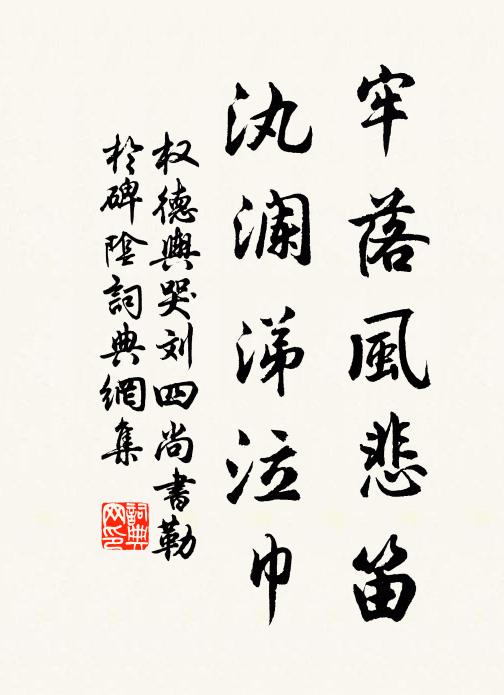 牢落風悲笛
汍瀾涕泣巾
权德輿哭刘四尚書勒
於碑陰詞典網集
詞典网印